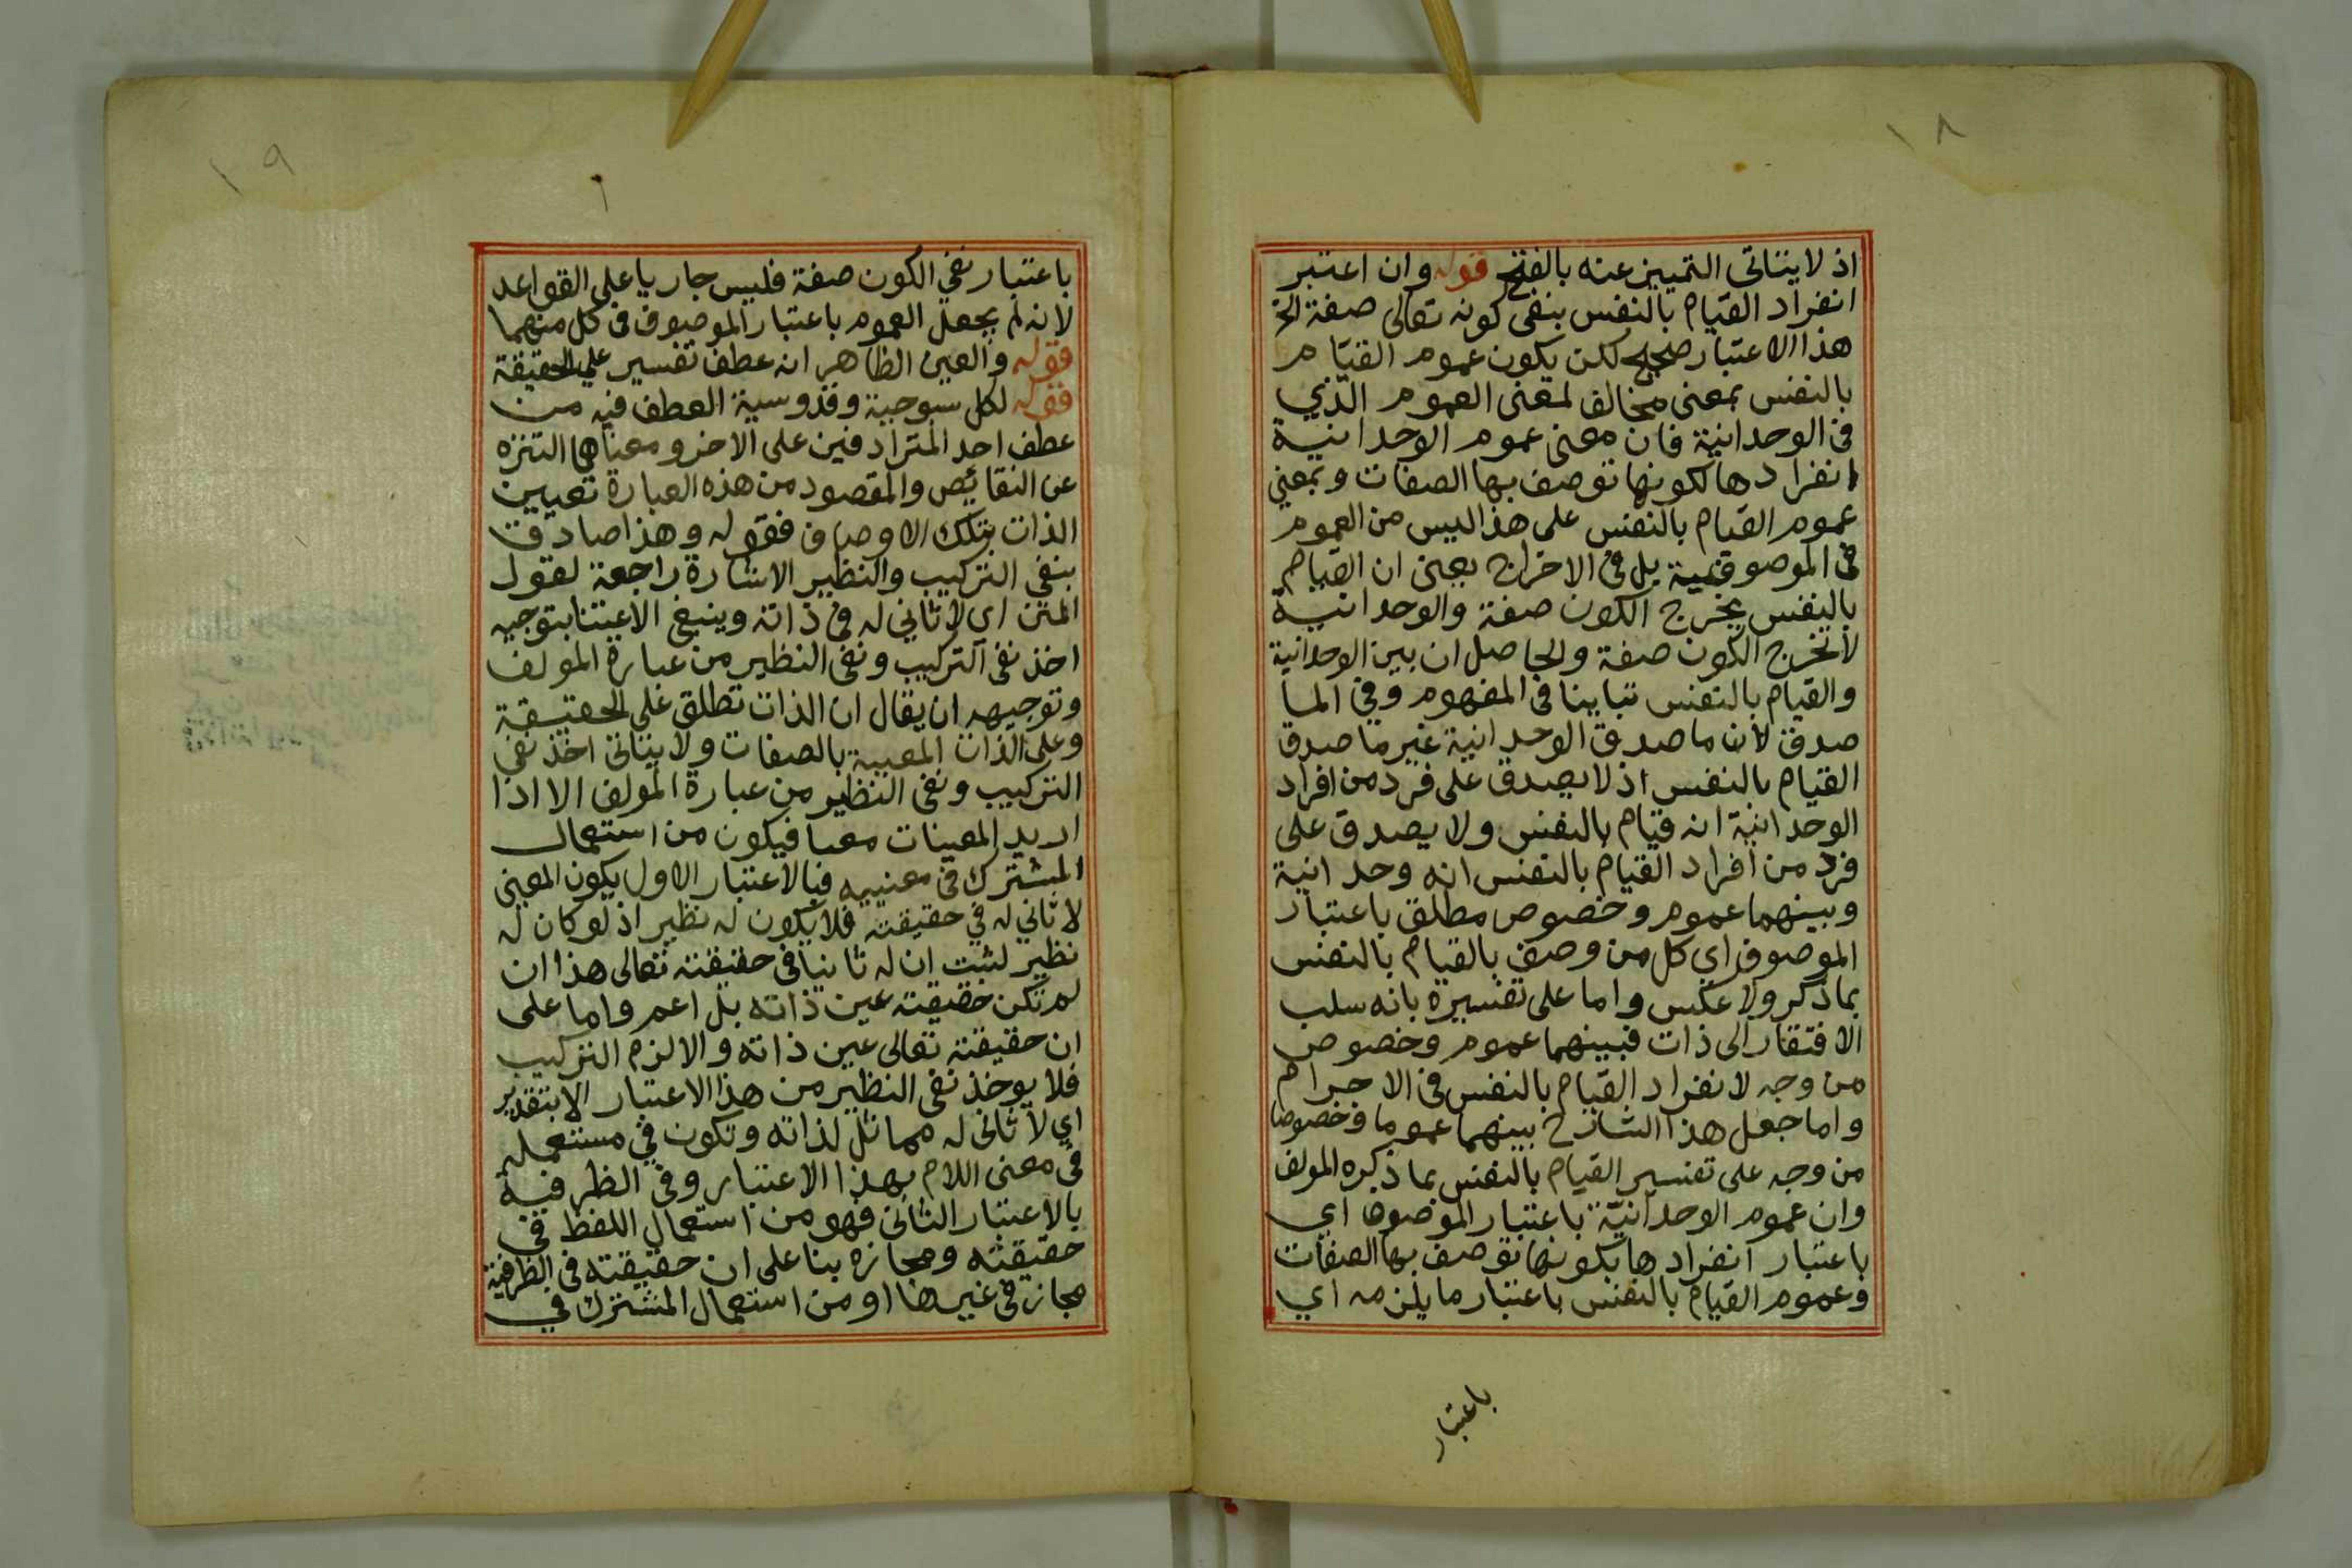 ١٨
اذ لا يتاتى التمييز عنه بالفتح قوله وان اعتبر
انفراد القيام بالنفس بنفى كونه تعالى صفة الخ
هذا الاعتبار صحيح لكن يكون عموم القيام
بالنفس بمعنى مخالف لمعنى العموم الذي
فى الوحدانية فان معنى عموم الوحدانية
انفرادها لكونها توصف بها الصفات وبمعنى
عموم القيام بالنفس على هذا ليس من العموم
فى الموصوفية بل فى الاخراج بمعنى ان القيام
بالنفس يخرج الكون صفة والوحدانية
لا تخرج الكون صفة والحاصل ان بين الوحدانية
والقيام بالنفس تباينا فى المفهوم وفى الما
صدق لان ما صدق الوحدانية غير ما صدق
القيام بالنفس اذ لا يصدق على فرد من افراد
الوحدانية انه قيام بالنفس ولا يصدق على
فرد من افراد القيام بالنفس انه وحدانية
وبينهما عموم وخصوص مطلق باعتبار
الموصوف اي كل من وصف بالقيام بالنفس
بما ذكر ولا عكس واما على تفسيره بانه سلب
الافتقار الى ذات فبينهما عموم وخصوص
من وجه لانفراد القيام بالنفس فى الاجرام
واما جعل هذا الشارح بينهما عموما وخصوصا
من وجه على تفسير القيام بالنفس بما ذكره المولف
وان عموم الوحدانية باعتبار الموصوف اي
باعتبار انفرادها بكونها توصف بها الصفات
وعموم القيام بالنفس باعتبار ما يلزمه اي
باعتبار
١٩
باعتبار نفي الكون صفة فليس جاريا على القواعد
لانه لم يجعل العموم باعتبار الموصوف فى كل منهما
قوله والعين الظاهر انه عطف تفسير على الحقيقة
قوله لكل سبوحية وقدوسية العطف فيه من
عطف احد المترادفين على الاخر ومعناها التنزه
عن النقائص والمقصود من هذه العبارة تعيين
الذات بتلك الاوصاف فقوله وهذا صادق
بنفي التركيب والنظير الاشارة راجعة لقول
المتن اي لا ثاني له فى ذاته وينبغى الاعتنا بتوجيه
اخذ نفى التركيب ونفى النظير من عبارة المولف
وتوجيهه ان يقال ان الذات تطلق على الحقيقة
وعلى الذات المعيبة بالصفات ولا يتاتى اخذ نفى
التركيب ونفى النظير من عبارة المولف الا اذا
اريد المعينات معا فيكون من استعمال
المشترك فى معنييه فبالاعتبار الاول يكون المعنى
لا ثاني له في حقيقته فلا يكون له نظير اذ لو كان له
نظير لثبت ان له ثانيا فى حقيقته تعالى هذا ان
لم تكن حقيقته عين ذاته بل اعم واما على
ان حقيقته تعالى عين ذاته والا لزم التركيب
فلا يوخذ نفى النظير من هذا الاعتبار الا بتقدير
اي لا ثانى له مماثل لذاته وتكون في مستعمله
فى معنى اللام بهذا الاعتبار وفى الظرفية
بالاعتبار الثانى فهو من استعمال اللفظ فى
حقيقته ومجازه بنا على ان حقيقته فى الظرفية
مجاز فى غيرها او من استعمال المشترك في